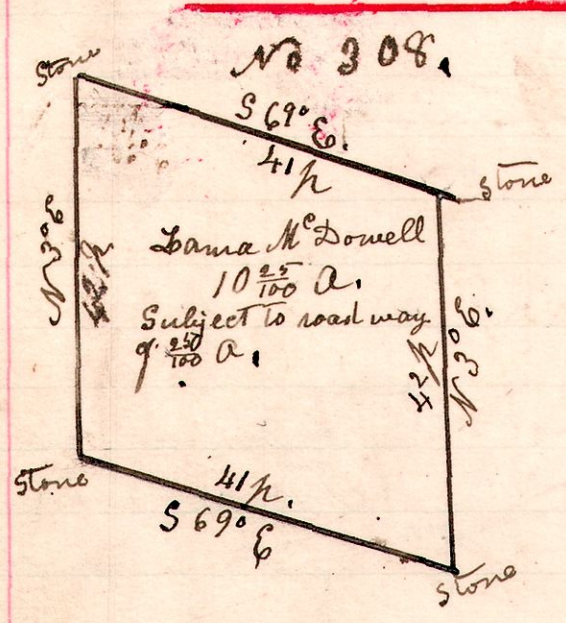 No 308.
Stone
S 69° E.
41 p
Stone
N 3° E
42 p
McDowell
10 25/100 A.
Subject to road way
of 250/100 A.
42 p
N 3° E.
Stone
41 p.
S 69° E
Stone